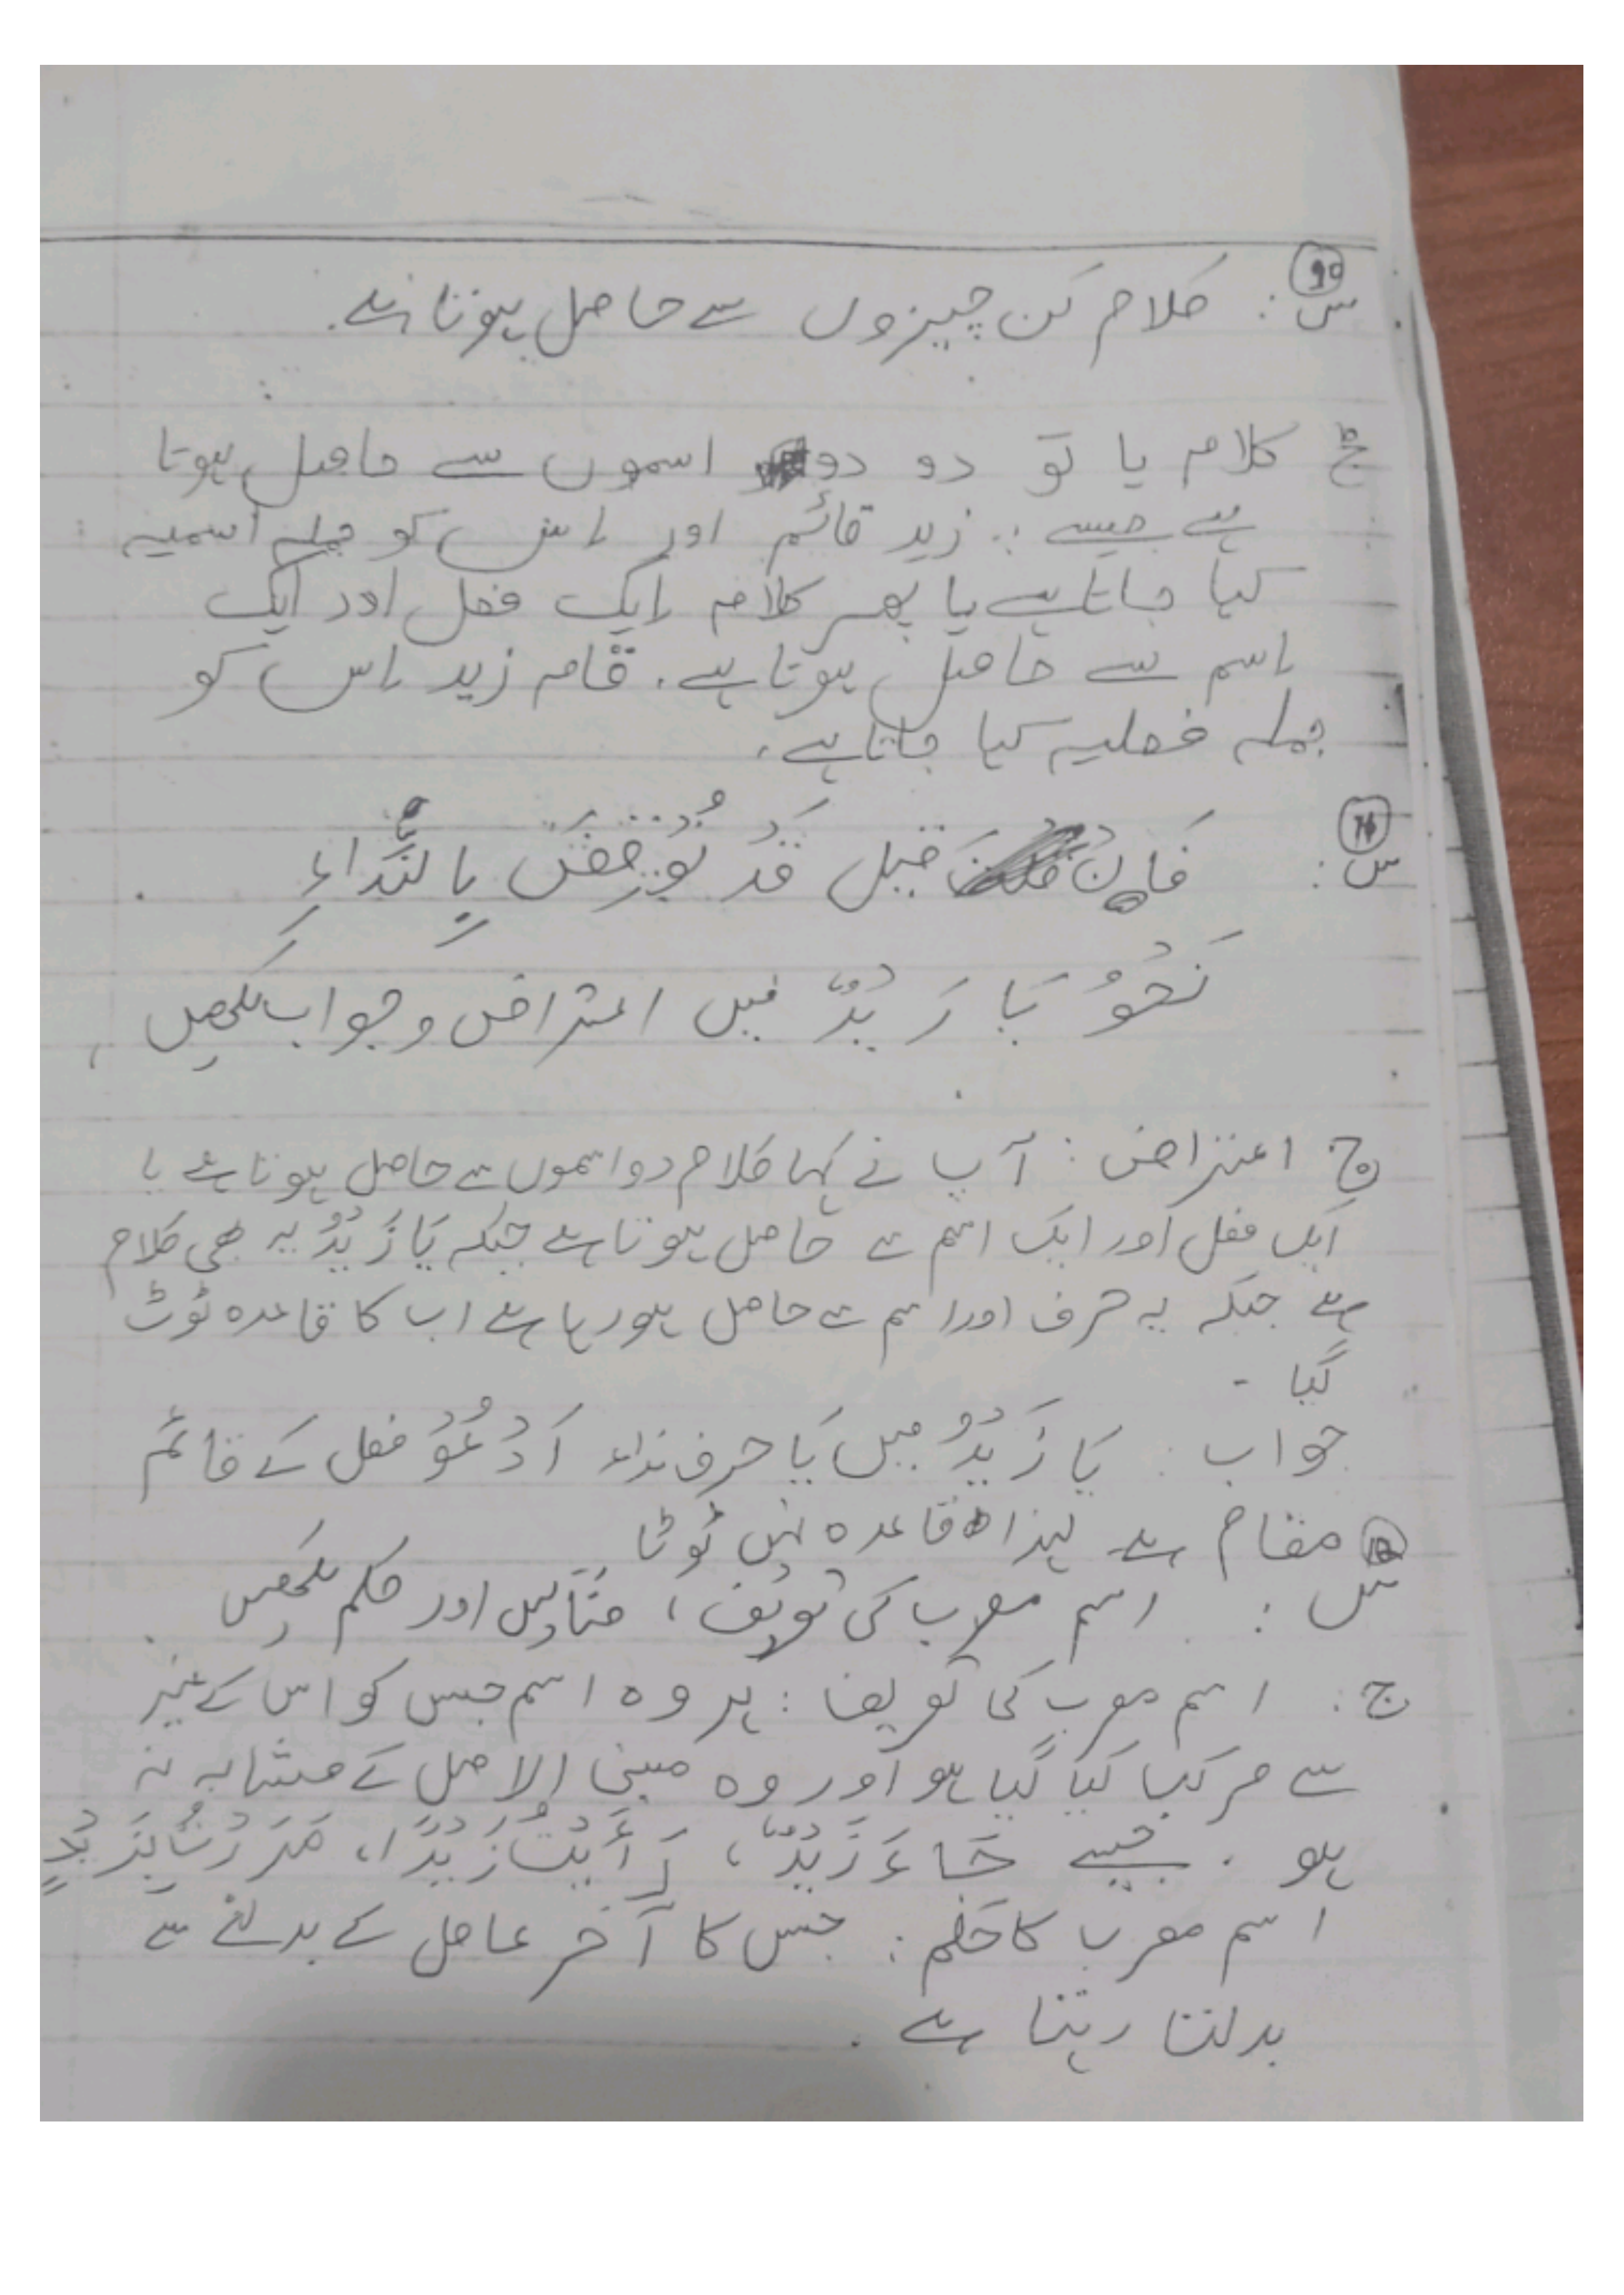 10
س: کلام کن چیزوں سے حاصل ہوتا ہے۔
ج کلام یا تو دو دو اسموں سے حاصل ہوتا
ہے جیسے: زید قائم اور اس کو جملہ اسمیہ
کہا جاتا ہے یا پھر کلام ایک فعل اور ایک
اسم سے حاصل ہوتا ہے۔ قام زید اس کو
جملہ فعلیہ کہا جاتا ہے۔
11
س: فَاِنْ قیل قَدْ نُوْقِضَ بِالنِّدَاءِ
نَحْوُ یَا زَیْدُ میں اعتراض و جواب لکھیں
ج اعتراض: آپ نے کہا کلام دو اسموں سے حاصل ہوتا ہے یا
ایک فعل اور ایک اسم سے حاصل ہوتا ہے جبکہ یَا زَیْدُ یہ بھی کلام
ہے جبکہ یہ حرف اور اسم سے حاصل ہو رہا ہے اب کا قاعدہ ٹوٹ
گیا۔
جواب: یَا زَیْدُ میں یَا حرف نداء اَدْعُوْ فعل کے قائم
مقام ہے لہذا قاعدہ نہیں ٹوٹا
12
س: اسم معرب کی تعریف، مثالیں اور حکم لکھیں
ج: اسم معرب کی تعریف: ہر وہ اسم جس کو اس کے غیر
سے مرکب کیا گیا ہو اور وہ مبنی الاصل کے مشابہ نہ
ہو۔ جیسے جَاءَ زَیْدٌ، رَأَیْتُ زَیْدًا، مَرَرْتُ بِزَیْدٍ
اسم معرب کا حکم: جس کا آخر عامل کے بدلنے سے
بدلتا رہتا ہے۔